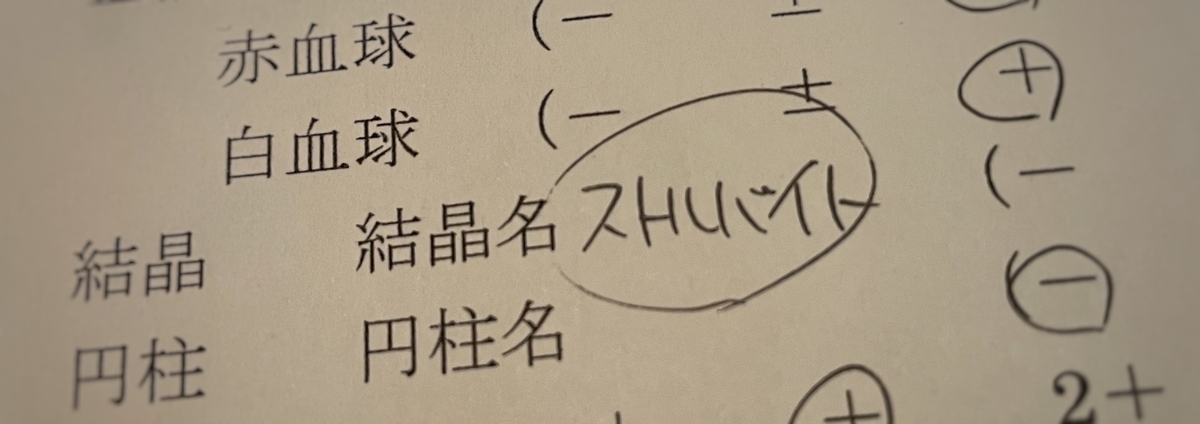 赤血球 (− ±
白血球 (− ± +
結晶 結晶名 ストルバイト (−
円柱 円柱名 −
+ 2+